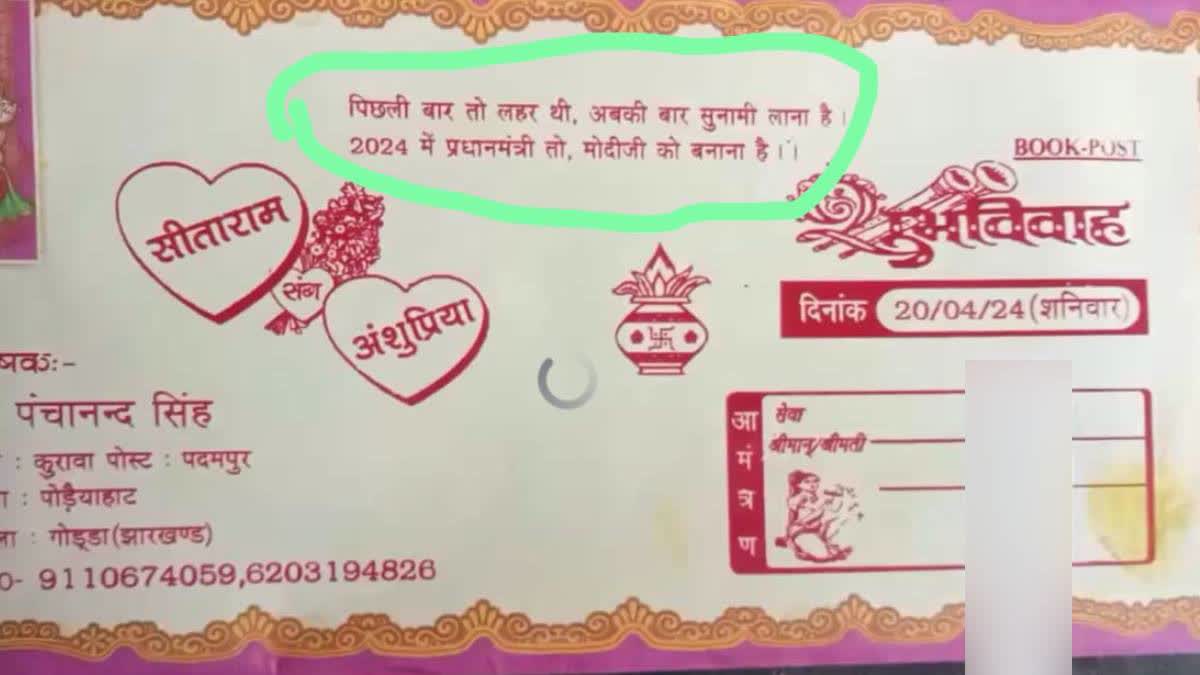 पिछली बार तो लहर थी, अबकी बार सुनामी लाना है।
2024 में प्रधानमंत्री तो, मोदीजी को बनाना है।।
BOOK-POST
शुभविवाह
सीताराम
संग
अंशुप्रिया
दिनांक 20/04/24 (शनिवार)
पंचानन्द सिंह
: कुरावा पोस्ट : पदमपुर
: पोड़ैयाहाट
: गोड्डा (झारखण्ड)
9110674059,6203194826
आमंत्रण
सेवा
श्रीमान्/श्रीमती